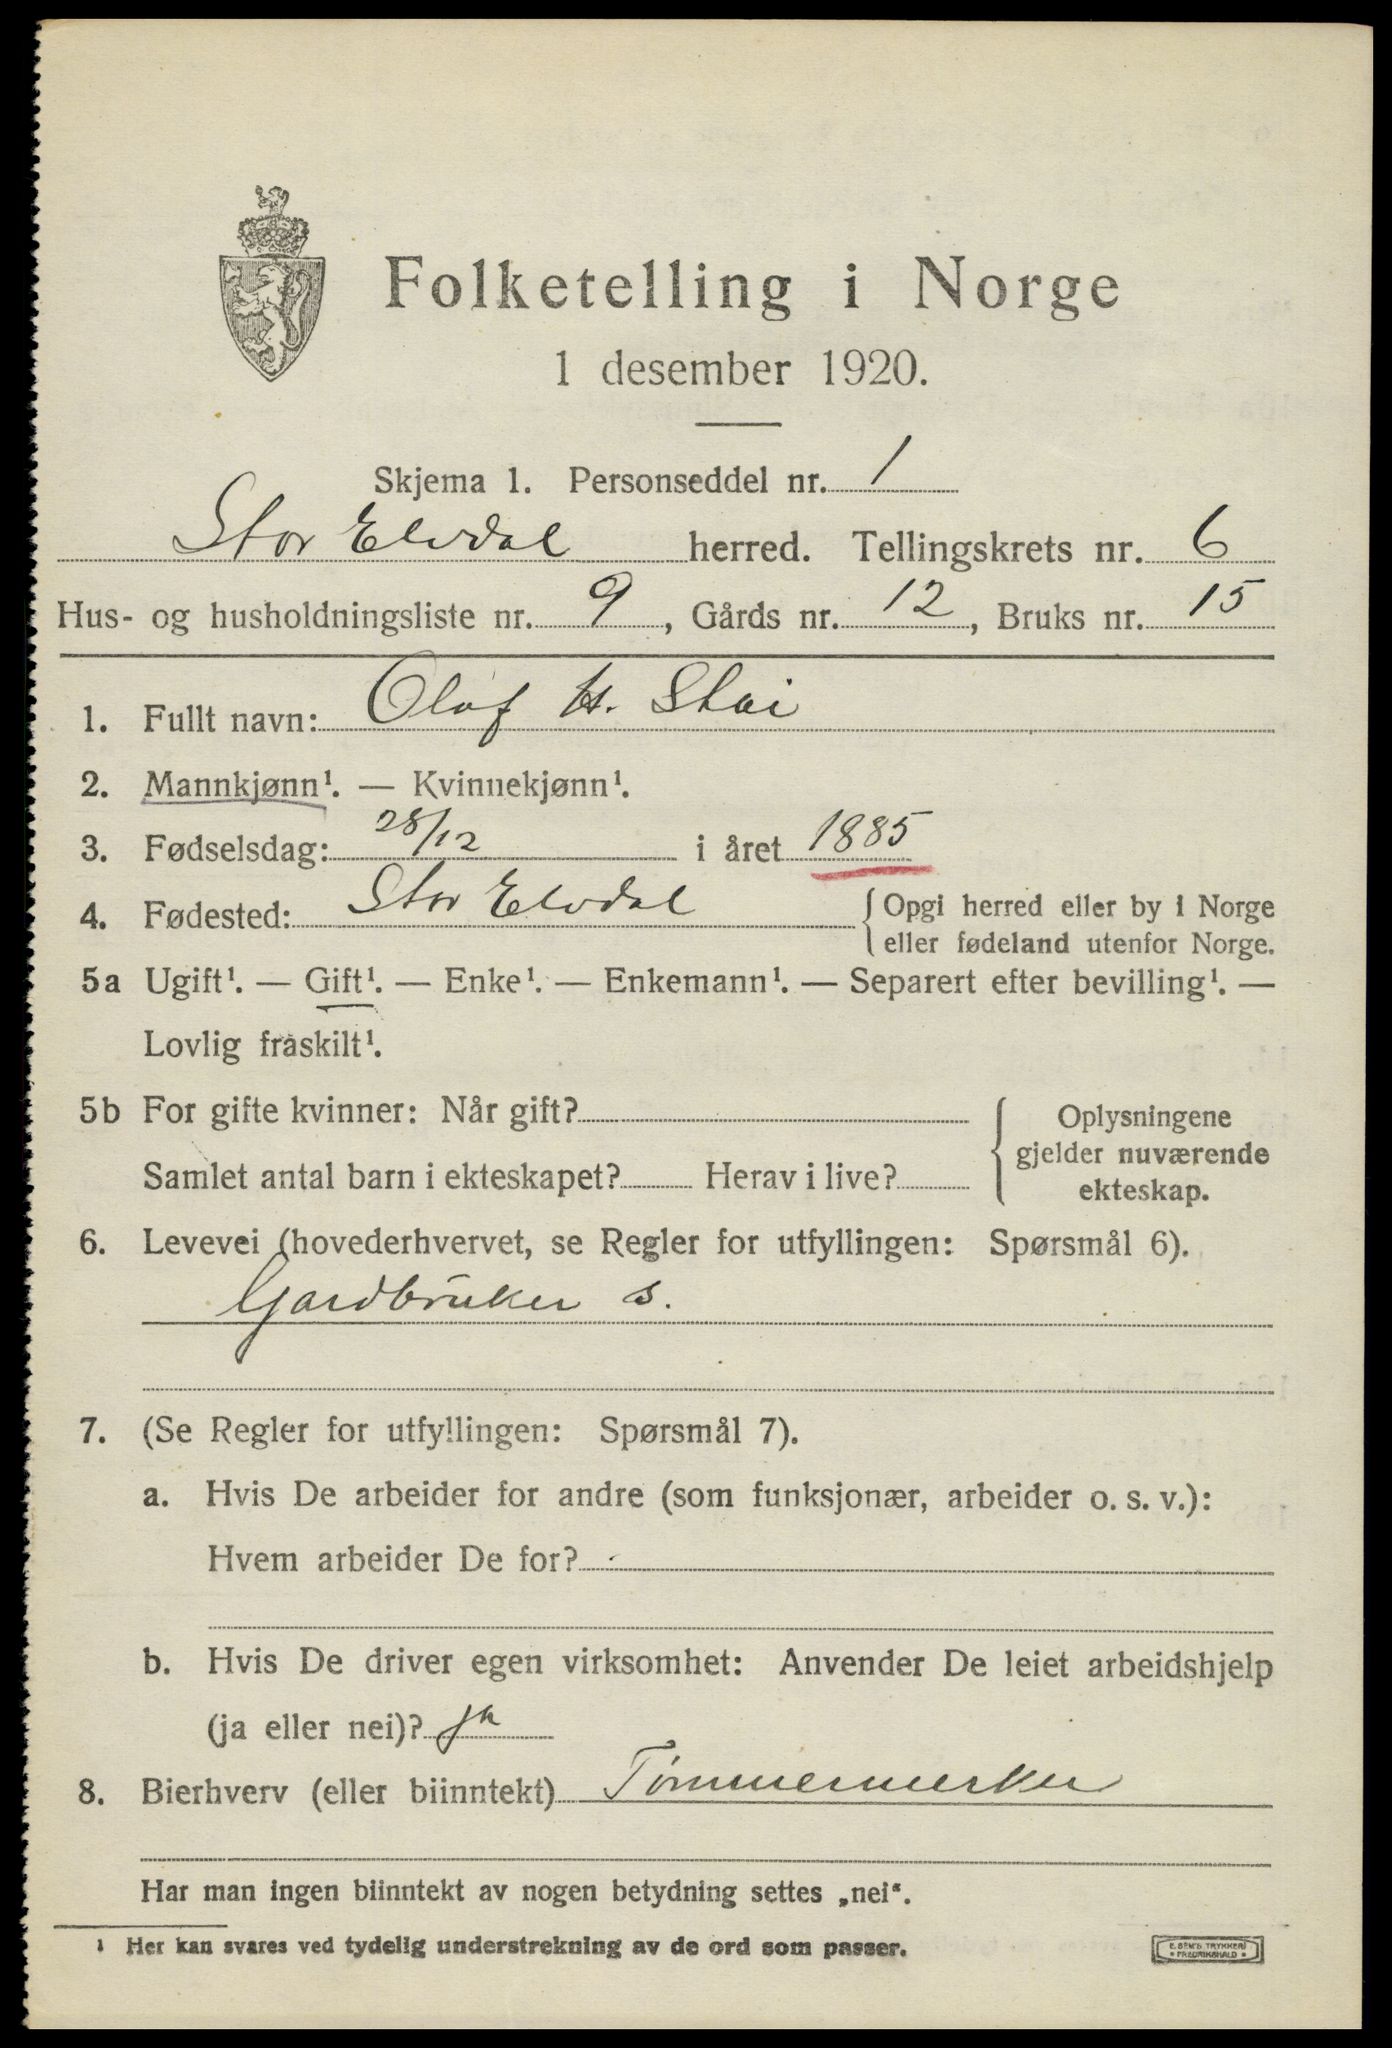 Folketelling i Norge
1 desember 1920.
Skjema 1. Personseddel nr. 1
Stor Elvdal herred. Tellingskrets nr. 6
Hus- og husholdningsliste nr. 9, Gårds nr. 12, Bruks nr. 15
1. Fullt navn: Olaf H. Stai
2. Mannkjønn¹. — Kvinnekjønn¹.
3. Fødselsdag: 28/12 i året 1885
4. Fødested: Stor Elvdal { Opgi herred eller by i Norge
eller fødeland utenfor Norge.
5a Ugift¹. — Gift¹. — Enke¹. — Enkemann¹. — Separert efter bevilling¹. —
Lovlig fraskilt¹.
5b For gifte kvinner: Når gift? { Oplysningene
gjelder nuværende
Samlet antal barn i ekteskapet? Herav i live? ekteskap.
6. Levevei (hovederhvervet, se Regler for utfyllingen: Spørsmål 6).
Gardbruker s.
7. (Se Regler for utfyllingen: Spørsmål 7).
a. Hvis De arbeider for andre (som funksjonær, arbeider o. s. v.):
Hvem arbeider De for?
b. Hvis De driver egen virksomhet: Anvender De leiet arbeidshjelp
(ja eller nei)? ja
8. Bierhverv (eller biinntekt) Tømmermerker
Har man ingen biinntekt av nogen betydning settes „nei“.
¹ Her kan svares ved tydelig understrekning av de ord som passer.
E. SEM'S TRYKKERI
• FREDRIKSHALD •